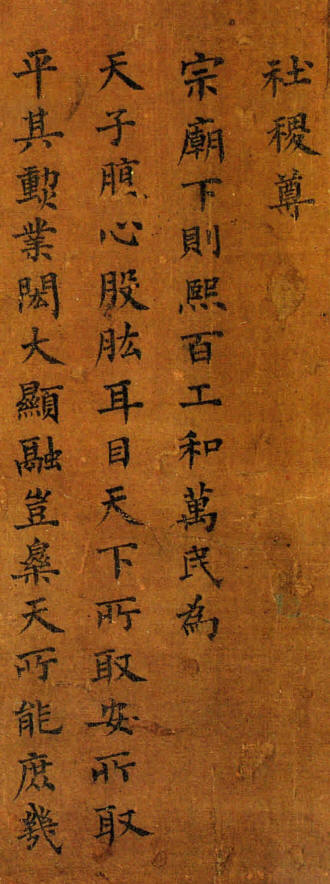 社稷尊
宗廟下則熙百工和萬民為
天子腹心股肱耳目天下所取安所取
平其勲業閎大顯融豈天所能庶幾